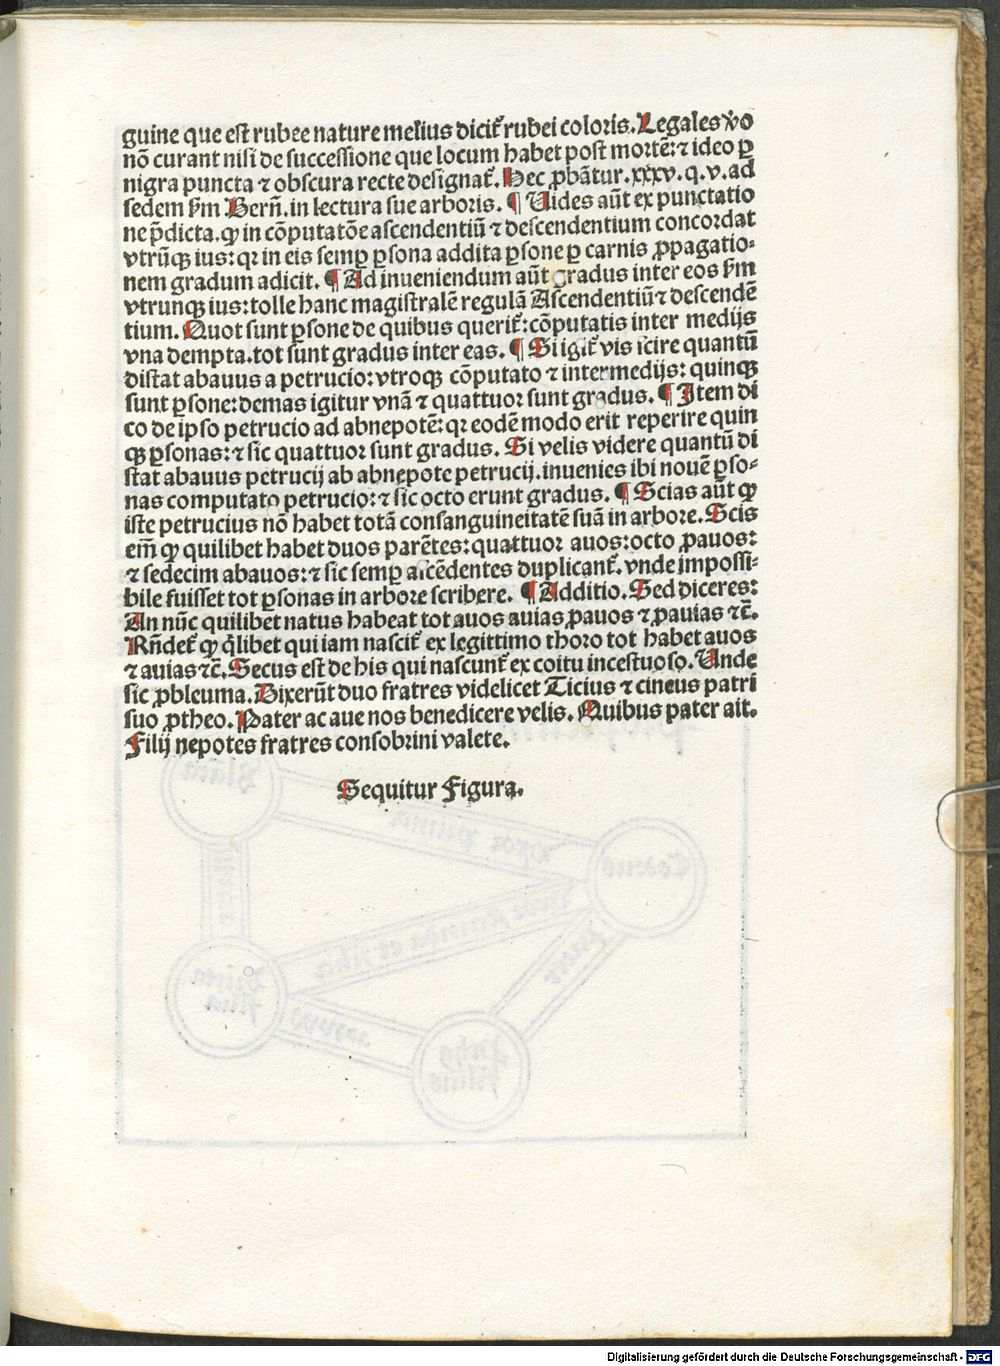 guine que est rubee nature melius dicit̃ rubei coloris. Legales v̾o
nō curant nisi de successione que locum habet post mortē: ⁊ ideo ꝑ
nigra puncta ⁊ obscura recte designat̃. Hec ꝓbãtur. xxxv. q. v. ad
sedem ẜm Berñ. in lectura sue arboris. ¶ Uides aũt ex punctatio
ne p̃dicta. ꝙ in cōputatõe ascendentiũ ⁊ descendentium concordat
vtrũqꝫ ius: qꝛ in eis semꝑ ꝑsona addita ꝑsone ꝑ carnis ꝓpagatio⸗
nem gradum adicit. ¶ Ad inueniendum aũt gradus inter eos ẜm
vtrunqꝫ ius: tolle hanc magistralē regulã Ascendentiũ ⁊ descendē
tium. Quot sunt ꝑsone de quibus querit̃: cōputatis inter medijs
vna dempta. tot sunt gradus inter eas. ¶ Si igit̃ vis scire quantũ
distat abauus a petrucio: vtroqꝫ cōputato ⁊ intermedijs: quinqꝫ
sunt ꝑsone: demas igitur vnã ⁊ quattuor sunt gradus. ¶ Item di
co de ip̃so petrucio ad abnepotē: qꝛ eodē modo erit reperire quin
qꝫ ꝑsonas: ⁊ sic quattuor sunt gradus. Si velis videre quantũ di
stat abauus petrucij ab abnepote petrucij. inuenies ibi nouē ꝑso⸗
nas computato petrucio: ⁊ sic octo erunt gradus. ¶ Scias aũt ꝙ
iste petrucius nō habet totã consanguineitatē suã in arbore. Scis
em̃ ꝙ quilibet habet duos parētes: quattuor auos: octo ꝓauos:
⁊ sedecim abauos: ⁊ sic semꝑ ascēdentes duplicant̃. vnde impossi⸗
bile fuisset tot ꝑsonas in arbore scribere. ¶ Additio. Sed diceres:
An nũc quilibet natus habeat tot auos auias ꝓauos ⁊ ꝓauias ⁊c̃.
Rñdet̃ ꝙ q̃libet qui iam nascit̃ ex legittimo thoro tot habet auos
⁊ auias ⁊c̃. Secus est de his qui nascunt̃ ex coitu incestuoso. Unde
sic ꝓbleuma. Dixerũt duo fratres videlicet Ticius ⁊ cineus patri
suo ꝓtheo. Pater ac aue nos benedicere velis. Quibus pater ait.
Filij nepotes fratres consobrini valete.
Sequitur Figura.
Digitalisierung gefördert durch die Deutsche Forschungsgemeinschaft - DFG